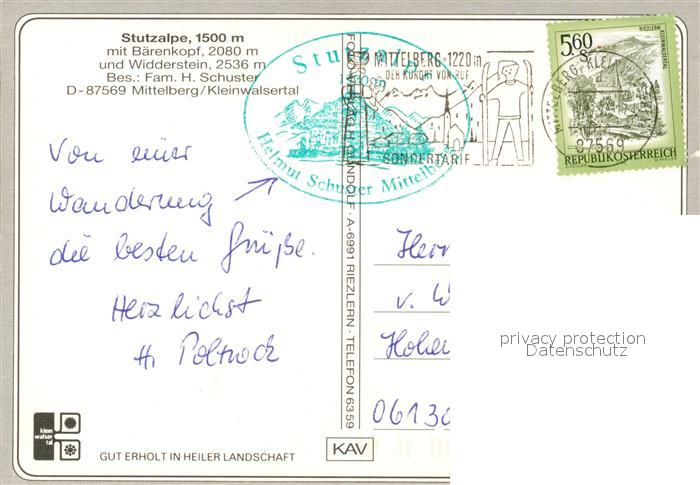 Stutzalpe, 1500 m
mit Bärenkopf, 2080 m
und Widderstein, 2536 m
Bes.: Fam. H. Schuster
D-87569 Mittelberg/Kleinwalsertal
Stutzalp
Helmut Schuster Mittelb
MITTELBERG 1220m
DER KURORT VON RUF
SONDERTARIF
87569
RIEZLERN
KLEINWALSERTAL
5,60
S
REPUBLIK ÖSTERREICH
Von einer
Wanderung
die besten Grüße.
Herzlichst
H. Poltrock
A-6991 RIEZLERN · TELEFON 6359
Herr
v. W
Hohen
06130
privacy protection
Datenschutz
klein
walser
tal
GUT ERHOLT IN HEILER LANDSCHAFT
KAV